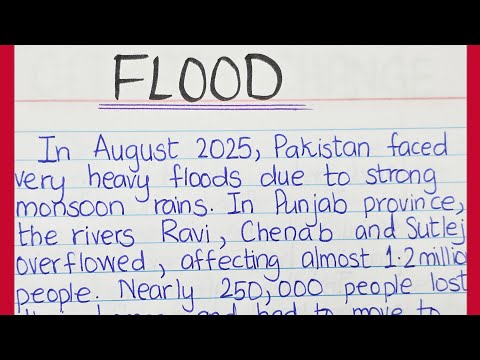 FLOOD
In August 2025, Pakistan faced
very heavy floods due to strong
monsoon rains. In Punjab province,
the rivers Ravi, Chenab and Sutlej
overflowed, affecting almost 1.2 millio
people. Nearly 250,000 people lost
and had to move to